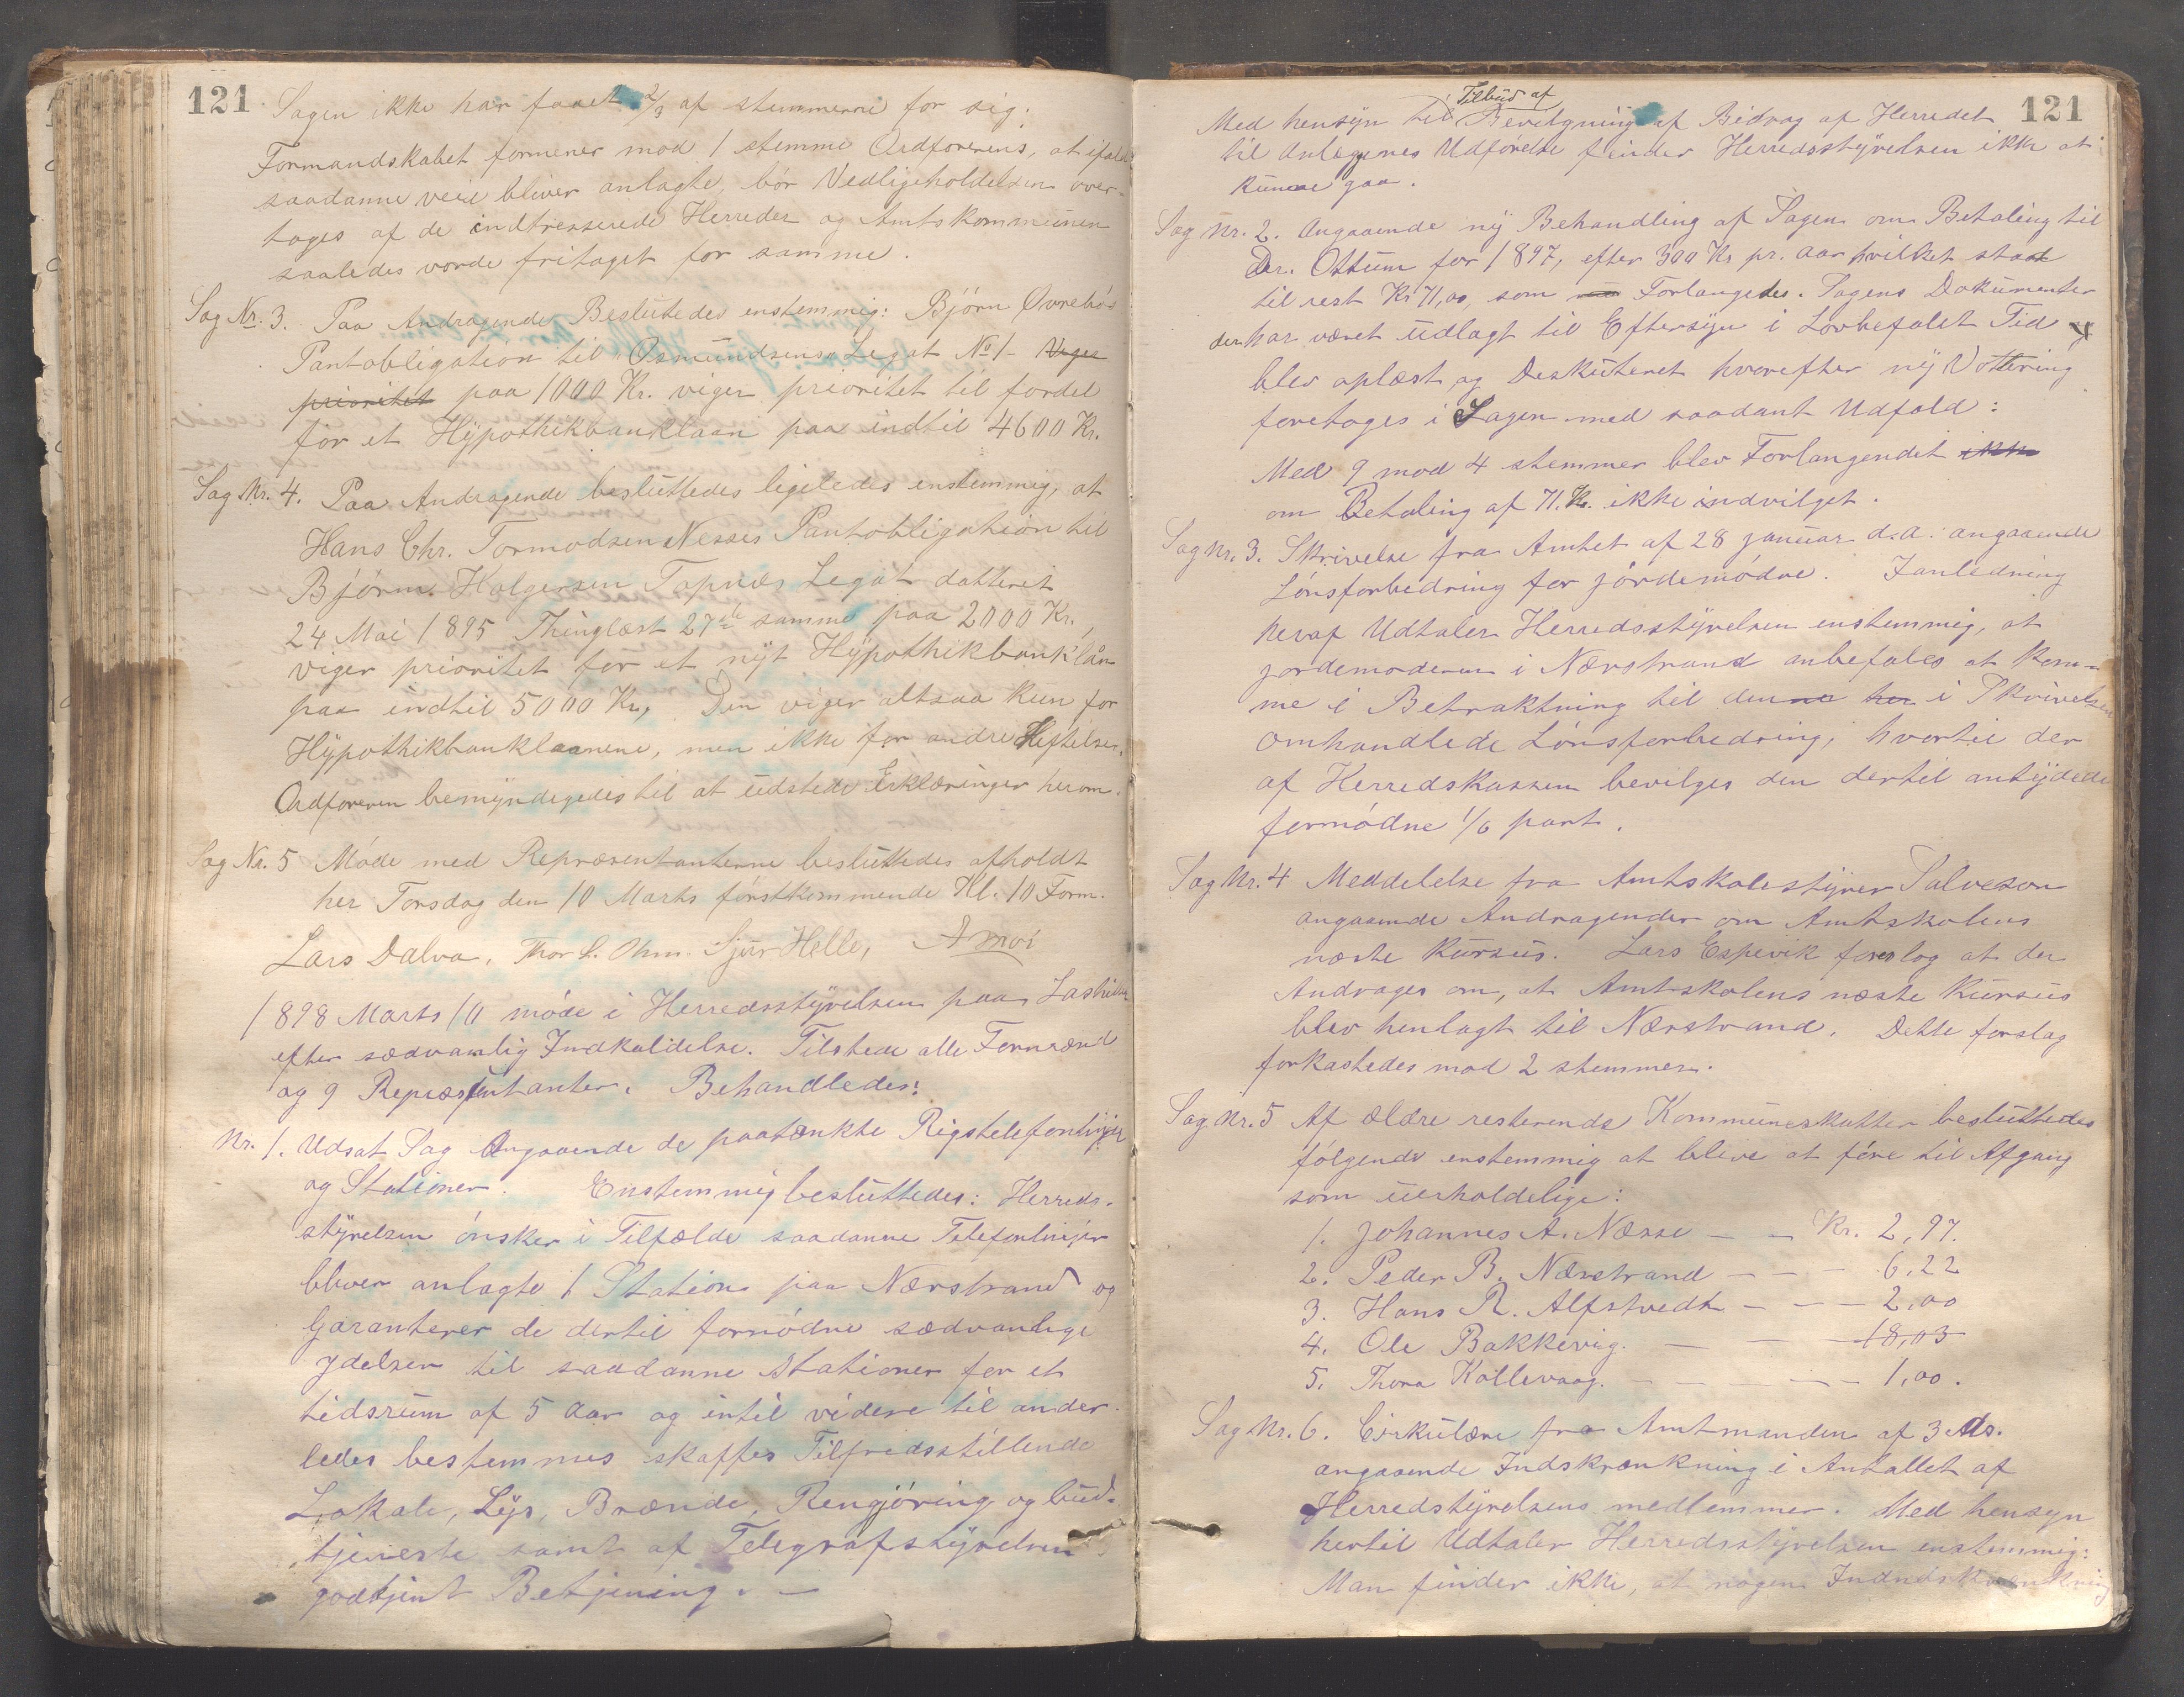 121
Sagen ikke har faaet 2/3 af stemmerne for sig.
Formandskabet formener mod 1 stemme Ordforerens, at ifald
saadanne veie bliver anlagte, bör Vedligeholdelsen over-
tages af de indtresserede Herreder og Amtskommunen
saaledes vorde fritaget for samme.
Sag Nr. 3. Paa Andragende Beslutedes enstemmig: Björn Øvrebös
Pantobligation til Osmundsens Legat No 1 - Viger
prioritet paa 1000 Kr. viger prioritet til fordel
for et Hypothikbanklaan paa indtil 4600 Kr.
Sag Nr. 4. Paa Andragende besluttedes ligeledes enstemmig, at
Hans Chr. Tormodsen Nesses Pantobligation til
Björn Holgersen Topnes Legat datteret
24 Mai 1895 Thinglæst 27de samme paa 2000 Kr.,
viger prioritet for et nyt Hypothikbanklån
paa indtil 5000 Kr., Den viger altsaa kun for
Hypothikbanklaanene, men ikke for andre Heftelser.
Ordforeren bemyndegedes til at udstede Erklæringer herom.
Sag Nr. 5 Möde med Repræsentanterne besluttedes afholdt
her Torsdag den 10 Marts förstkommende Kl. 10 Form.
Lars Dalva, Thor L. Ohm. Sjur Helle, A moi
1898 Marts 10 möde i Herredsstyrelsen paa
efter sædvanlig Indkaldelse. Tilstede alle Formænd
og 9 Repræsentanter. Behandledes:
Nr. 1. Udsat Sag Angaaende de paatænkte Rigstelefonlinjer
og Stationer. Enstemmig besluttedes: Herreds-
styrelsen önsker i Tilfælde saadanne Telefonlinjer
bliver anlagte 1 Station paa Nærstrand og
Garanterer de dertil fornödne sædvanlige
ydelser til saadanne Stationer for et
tidsrum af 5 aar og intil videre til ander-
ledes bestemmes skaffes Tilfredsstillende
Lokale, Lys, Brænde, Rengjöring og bud-
tjeneste samt af Telegrafstyrelsen
godtjent Betjening. -
121
Tilbud af
Med hensyn til Bevilgning af Bidrag af Herredet
til Anlægenes Udförelse finder Herredsstyrelsen ikke at
kunne gaa.
Sag Nr. 2. Angaaende ny Behandling af Sagen om Betaling til
Dr. Ottum for 1897, efter 300 Kr pr. Aar hvilket staar
til rest Kr 71,00, som Forlangedes. Sagens Dokumenter
der har været udlagt til Eftersyn i Lovbefalet Tid
blev oplæst og Deskuteret hvorefter ny Vottering
foretoges i Sagen med saadant Udfald:
Med 9 mod 4 stemmer blev Forlangendet ikke
om Betaling af 71. Kr. ikke indvilget.
Sag Nr. 3. Skrivelse fra Amtet af 28 januar d.a. angaaende
Lönsforbedring for jördemödre. I anledning
heraf Udtaler Herredsstyrelsen enstemmig, at
jordemoderen i Nærstrand anbefales at kom-
me i Betraktning til denne her i Skrivelsen
omhandlede Lönsforbedring, hvortil der
af Herredskassen bevilges den dertil antydede
fornödne 1/6 part.
Sag Nr. 4 Meddelelse fra Amtskolestyrer Salveson
angaaende Andragender om Amtskolens
næste Kursus. Lars Espevik foreslog at der
Andrages om, at Amtskolens næste Kursus
blev henlagt til Nærstrand. Dette forslag
forkastedes mod 2 stemmer.
Sag Nr. 5 Af ældre resterende Kommuneskatter besluttedes
fölgende enstemmig at blive at före til Afgang
som uerholdelige:
1. Johannes A. Næsse - - Kr. 2,97.
2. Peder B. Nærstrand - - - 6,22
3. Hans R. Alfstvedt - - - 2,00
4. Ole Bakkevig. - - 18,03
5. Thora Kollevaag. - - - - - 1,00.
Sag Nr. 6. Cirkulære fra Amtmanden af 3 ds.
angaaende Indskrænkning i Antallet af
Herredstyrelsens medlemmer. Med hensyn
hertil Udtaler Herredsstyrelsen enstemmig:
Man finder ikke, at nogen Indndskrænkning